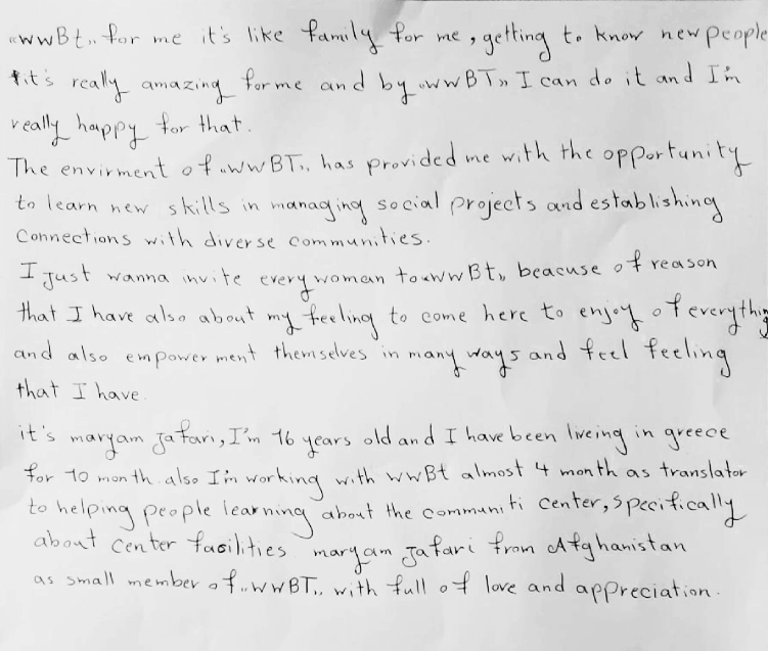 «wwBt„ for me it's like family for me, getting to know new people
it's really amazing for me and by «wwBT» I can do it and I'm
really happy for that.
The envirment of „wwBT„ has provided me with the opportunity
to learn new skills in managing social projects and establishing
Connections with diverse communities.
I just wanna invite every woman to «wwBt„ beacuse of reason
that I have also about my feeling to come here to enjoy of everything
and also empowerment themselves in many ways and feel feeling
that I have.
it's maryam Jafari, I'm 16 years old and I have been liveing in greece
for 10 month. also I'm working with wwBt almost 4 month as translator
to helping people learning about the communiti center, specifically
about center facilities maryam Jafari from Afghanistan
as small member of „wwBT„ with full of love and appreciation.